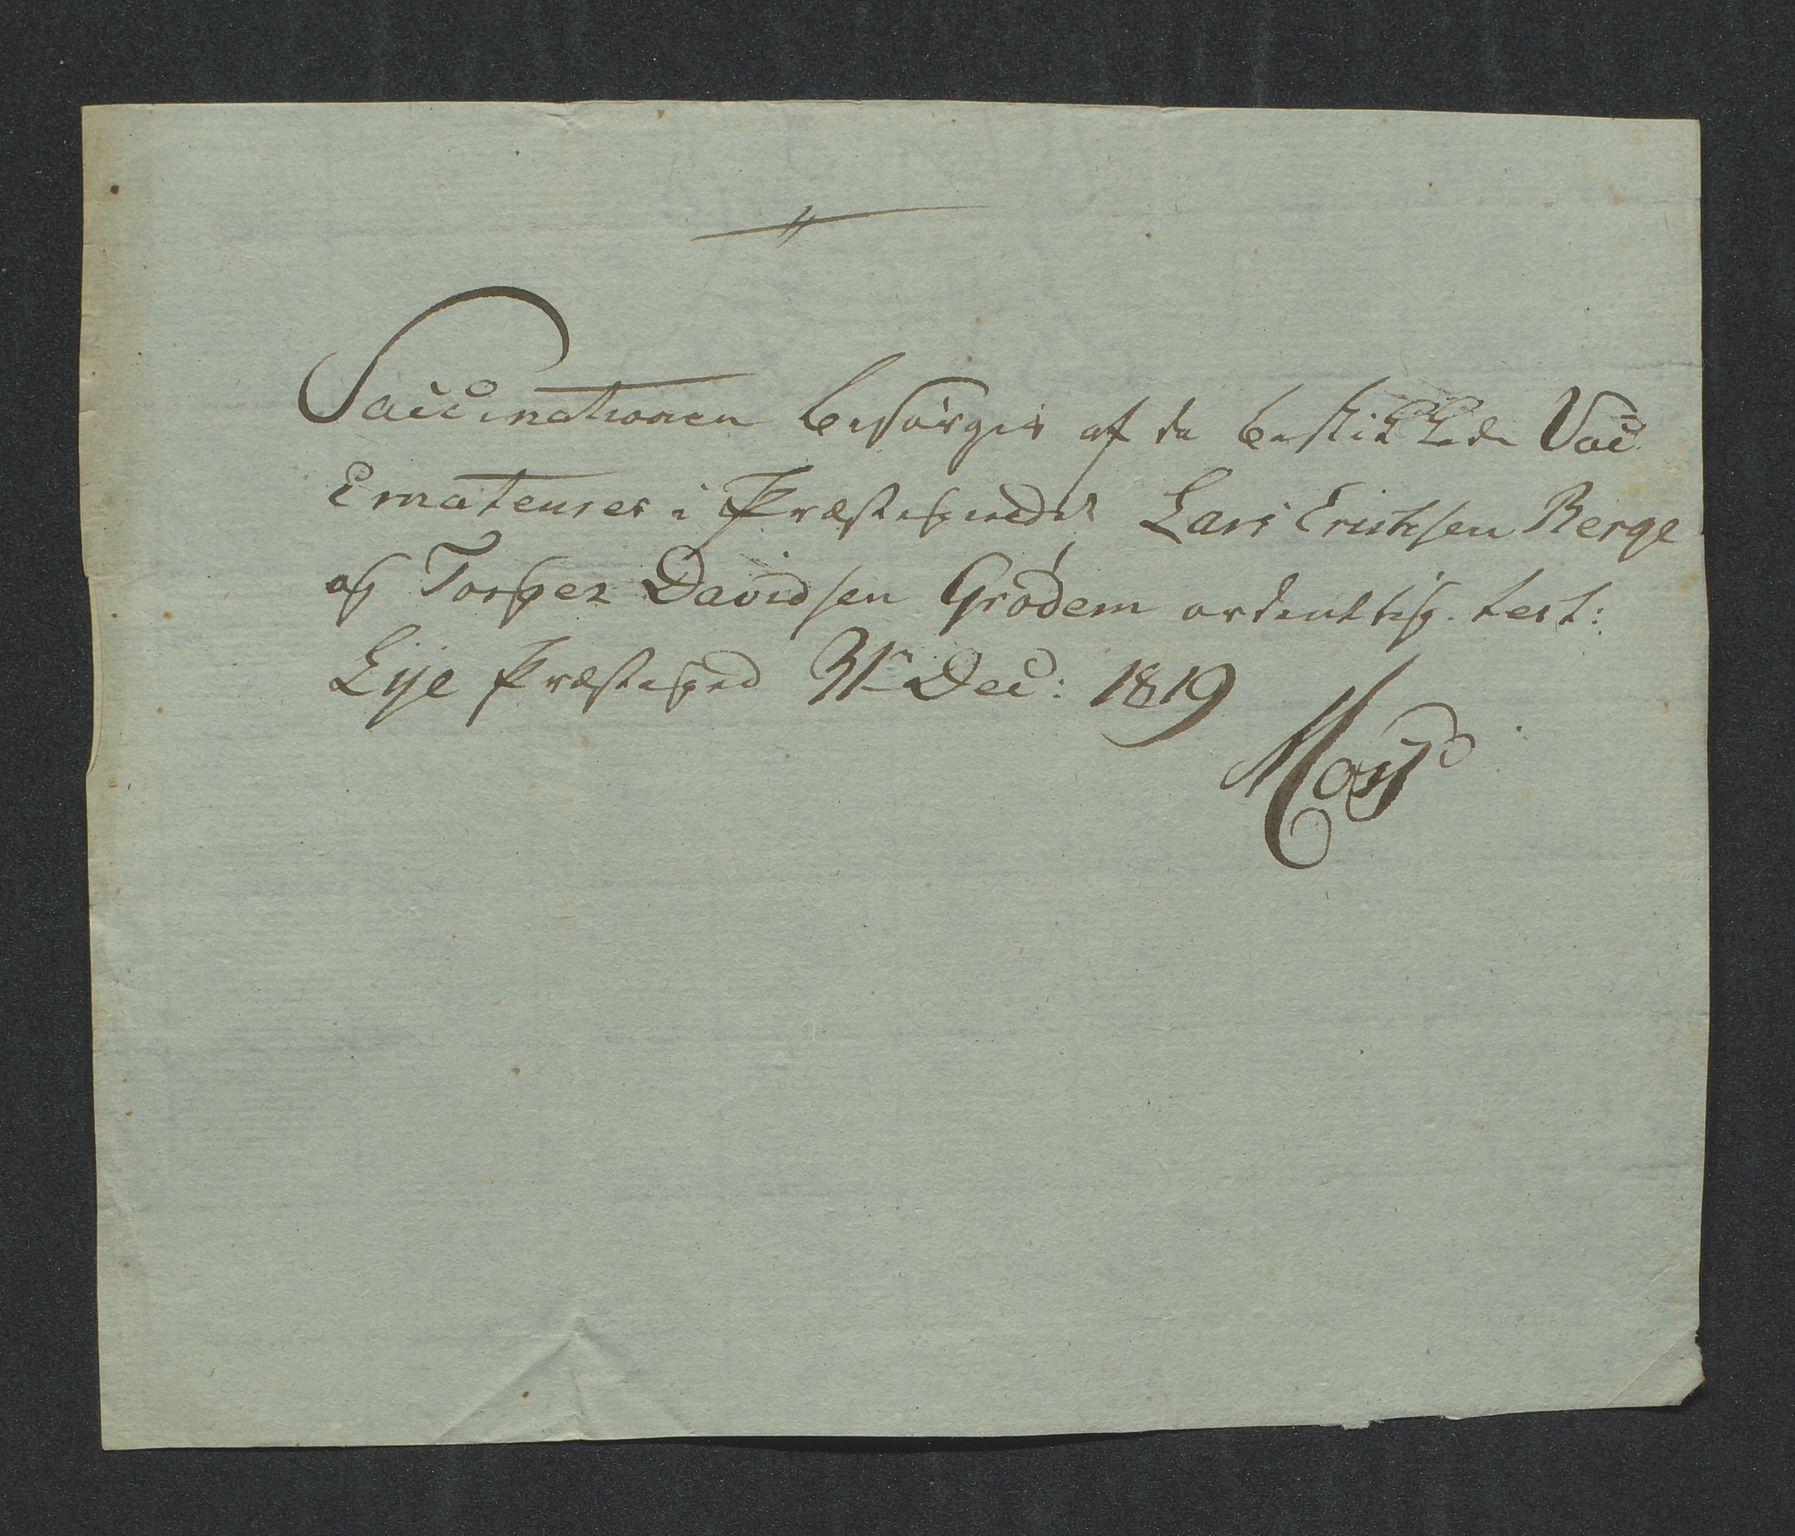 Vaccinationen besørges af de beskikkede Vac
cinateurer i Præstegieldet Lars Erichsen Berge
og Torger Davidsen Grødem ordentlig. test:
Lye Præstegied 31te Dec: 1819